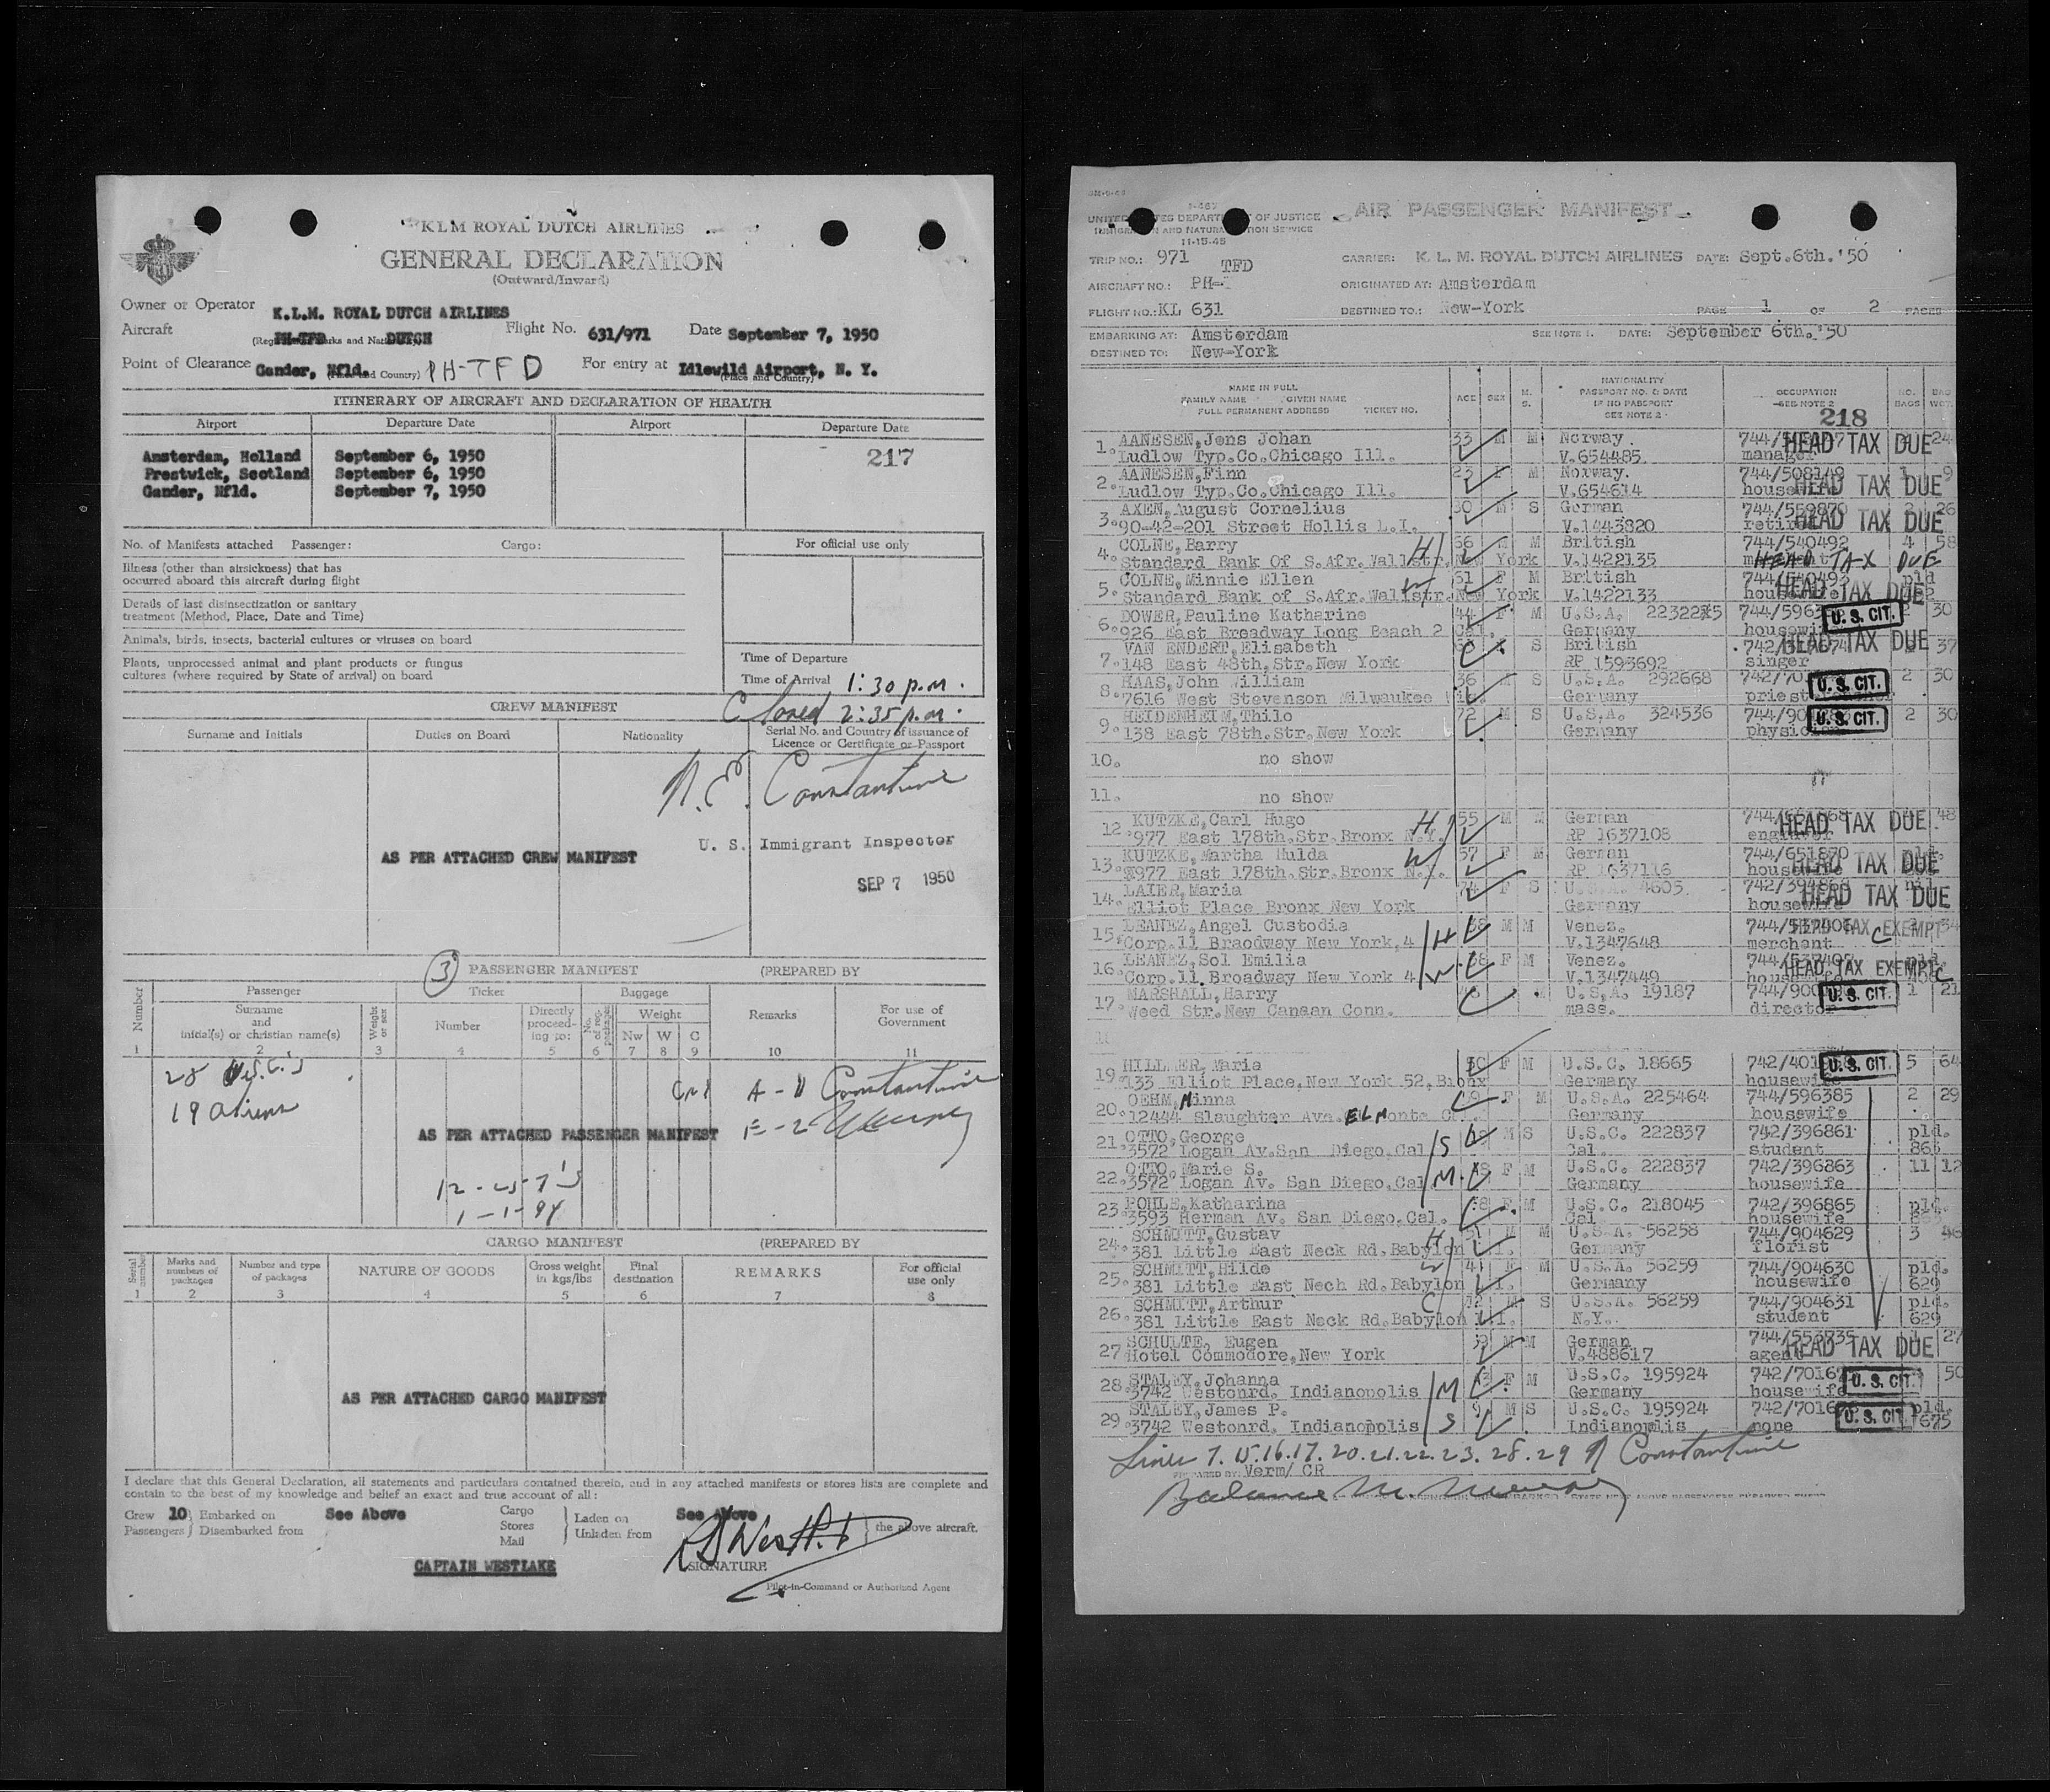 KLM ROYAL DUTCH AIRLINES
GENERAL DECLARATION
(Outward/Inward)
Owner or Operator K.L.M. ROYAL DUTCH AIRLINES
Aircraft PH-TFD DUTCH Flight No. 631/971 Date September 7, 1950
Point of Clearance Gander, Nfld. PH-TFD For entry at Idlewild Airport, N. Y.
(Place and Country)
ITINERARY OF AIRCRAFT AND DECLARATION OF HEALTH
Airport Departure Date Airport Departure Date
217
Amsterdam, Holland September 6, 1950
Prestwick, Scotland September 6, 1950
Gander, Nfld. September 7, 1950
No. of Manifests attached Passenger: Cargo: For official use only
Illness (other than airsickness) that has
occurred aboard this aircraft during flight
Details of last disinsectization or sanitary
treatment (Method, Place, Date and Time)
Animals, birds, insects, bacterial cultures or viruses on board
Plants, unprocessed animal and plant products or fungus
cultures (where required by State of arrival) on board
Time of Departure
Time of Arrival 1:30 p.m.
Closed 2:35 p.m.
CREW MANIFEST
Surname and Initials Duties on Board Nationality Serial No. and Country of issuance of
Licence or Certificate or Passport
N.E. Constantine
U. S. Immigrant Inspector
AS PER ATTACHED CREW MANIFEST
SEP 7 1950
3 PASSENGER MANIFEST (PREPARED BY
Number Passenger Ticket Baggage
Surname and initial(s) or christian name(s) Weight or sex Number Directly proceeding to: No. of reg. packages Weight Nw W C Remarks For use of Government
1 2 3 4 5 6 7 8 9 10 11
28 U.S.C.'s
19 aliens
Constantine
AS PER ATTACHED PASSENGER MANIFEST
CARGO MANIFEST (PREPARED BY
Serial number Marks and numbers of packages Number and type of packages NATURE OF GOODS Gross weight in kgs/lbs Final destination REMARKS For official use only
1 2 3 4 5 6 7 8
AS PER ATTACHED CARGO MANIFEST
I declare that this General Declaration, all statements and particulars contained therein, and in any attached manifests or stores lists are complete and
contain to the best of my knowledge and belief an exact and true account of all:
Crew 10 Embarked on See Above Cargo Laden on See Above
Passengers Disembarked from Stores Unladen from the above aircraft.
Mail
CAPTAIN WESTLAKE
SIGNATURE
Pilot-in-Command or Authorized Agent
I-467
UNITED STATES DEPARTMENT OF JUSTICE AIR PASSENGER MANIFEST
IMMIGRATION AND NATURALIZATION SERVICE
11-15-45
TRIP NO.: 971 CARRIER: K. L. M. ROYAL DUTCH AIRLINES DATE: Sept.6th.'50
TFD
AIRCRAFT NO.: PH- ORIGINATED AT: Amsterdam
FLIGHT NO.: KL 631 DESTINED TO.: New-York PAGE 1 OF 2 PAGES
EMBARKING AT: Amsterdam SEE NOTE 1. DATE: September 6th.'50
DESTINED TO: New-York
NAME IN FULL
FAMILY NAME GIVEN NAME
FULL PERMANENT ADDRESS TICKET NO.
AGE SEX M. S. NATIONALITY PASSPORT NO. & DATE IF NO PASSPORT SEE NOTE 2 OCCUPATION SEE NOTE 2 NO. BAGS
218
1. AANESEN,Jens Johan 33 M M Norway. HEAD TAX DUE 24
Ludlow Typ.Co.Chicago Ill. V.654485 manager
2. AANESEN,Finn 23 F M Norway. 744/508149 1 9
Ludlow Typ.Co.Chicago Ill. V.654614 housewife HEAD TAX DUE
3. AXEN,August Cornelius M S German 744/559870 2 26
90-42-201 Street Hollis L.I. V.1443820 retired HEAD TAX DUE
4. COLNE,Barry H 66 M M British 744/540492 4 58
Standard Bank Of S.Afr.Wallstr.New York V.1422135 HEAD TAX DUE
5. COLNE,Minnie Ellen W 61 F M British 744/540493 pld
Standard Bank of S.Afr.Wallstr.New York V.1422133 housewife HEAD TAX DUE
6. DOWER,Pauline Katharine 44 F M U.S.A. U. S. CIT. 30
926 East Broadway Long Beach 2 Cal. Germany housewife
7. VAN ENDERT,Elisabeth S British HEAD TAX DUE 37
148 East 48th.Str.New York RP 1593692 singer
8. HAAS,John William 36 M S U.S.A. 292668 U. S. CIT. 2 30
7616 West Stevenson Milwaukee Germany priest
9. HEIDENHEIM,Thilo 72 M S U.S.A. 324536 U. S. CIT. 2 30
138 East 78th.Str.New York Germany
10. no show
11. no show
12. KUTZKE,Carl Hugo H 55 M M German HEAD TAX DUE 48
977 East 178th.Str.Bronx N.Y. RP 1637108 engraver
13. KUTZKE,Martha Hulda W 57 F M German 744/651870 pld.
977 East 178th.Str.Bronx N.Y. RP 1637116 housewife HEAD TAX DUE
14. LAIER,Maria 74 F S U.S.A. 4605 742/394868
Elliot Place Bronx New York Germany housewife HEAD TAX DUE
15. LEANEZ,Angel Custodia 38 M M Venez. HEAD TAX EXEMPT 34
Corp.11 Braodway New York,4 H V.1347648 merchant
16. LEANEZ,Sol Emilia 38 F M Venez. pld.
Corp.11.Broadway New York 4 W V.1347449 housewife HEAD TAX EXEMPT
17. MARSHALL,Harry M U.S.A. 19187 U. S. CIT. 1 21
Weed Str.New Canaan Conn. mass. director
19. HILLER,Maria 50 F M U.S.C. 18665 U. S. CIT. 5 64
133 Elliot Place,New York 52,Bronx Germany housewife
20. OEHM,Minna F M U.S.A. 225464 744/596385 2 29
12444 Slaughter Ave. EL Monte Germany housewife
21. OTTO,George M S U.S.C. 222837 742/396861 pld.
3572 Logan Av.San Diego,Cal S Cal. student 863
22. OTTO,Marie S. F M U.S.C. 222837 742/396863 11 12
3572 Logan Av. San Diego,Cal M. Germany housewife
23. POHLE,Katharina F M U.S.C. 218045 742/396865 pld.
3593 Herman Av. San Diego,Cal. Cal housewife
24. SCHMITT,Gustav H 51 M M U.S.A. 56258 744/904629 3 46
381 Little East Neck Rd.Babylon Germany florist
25. SCHMITT,Hilde W 41 F M U.S.A. 56259 744/904630 pld.
381 Little East Nech Rd.Babylon Germany housewife 629
26. SCHMITT,Arthur C 12 M S U.S.A. 56259 744/904631 pld.
381 Little East Neck Rd.Babylon N.Y. student 629
27. SCHULTE, Eugen 39 M M German 744/553735 27
Hotel Commodore,New York V.488617 agent HEAD TAX DUE
28. STALEY,Johanna F M U.S.C. 195924 U. S. CIT. 50
3742 Westonrd. Indianopolis M Germany housewife
29. STALEY,James P. 9 M S U.S.C. 195924 U. S. CIT. pld.
3742 Westonrd. Indianopolis S Indianoplis none 675
Lines 7.15.16.17.20.21.22.23.28.29 N Constantine
PREPARED BY: Verm/ CR
Balance